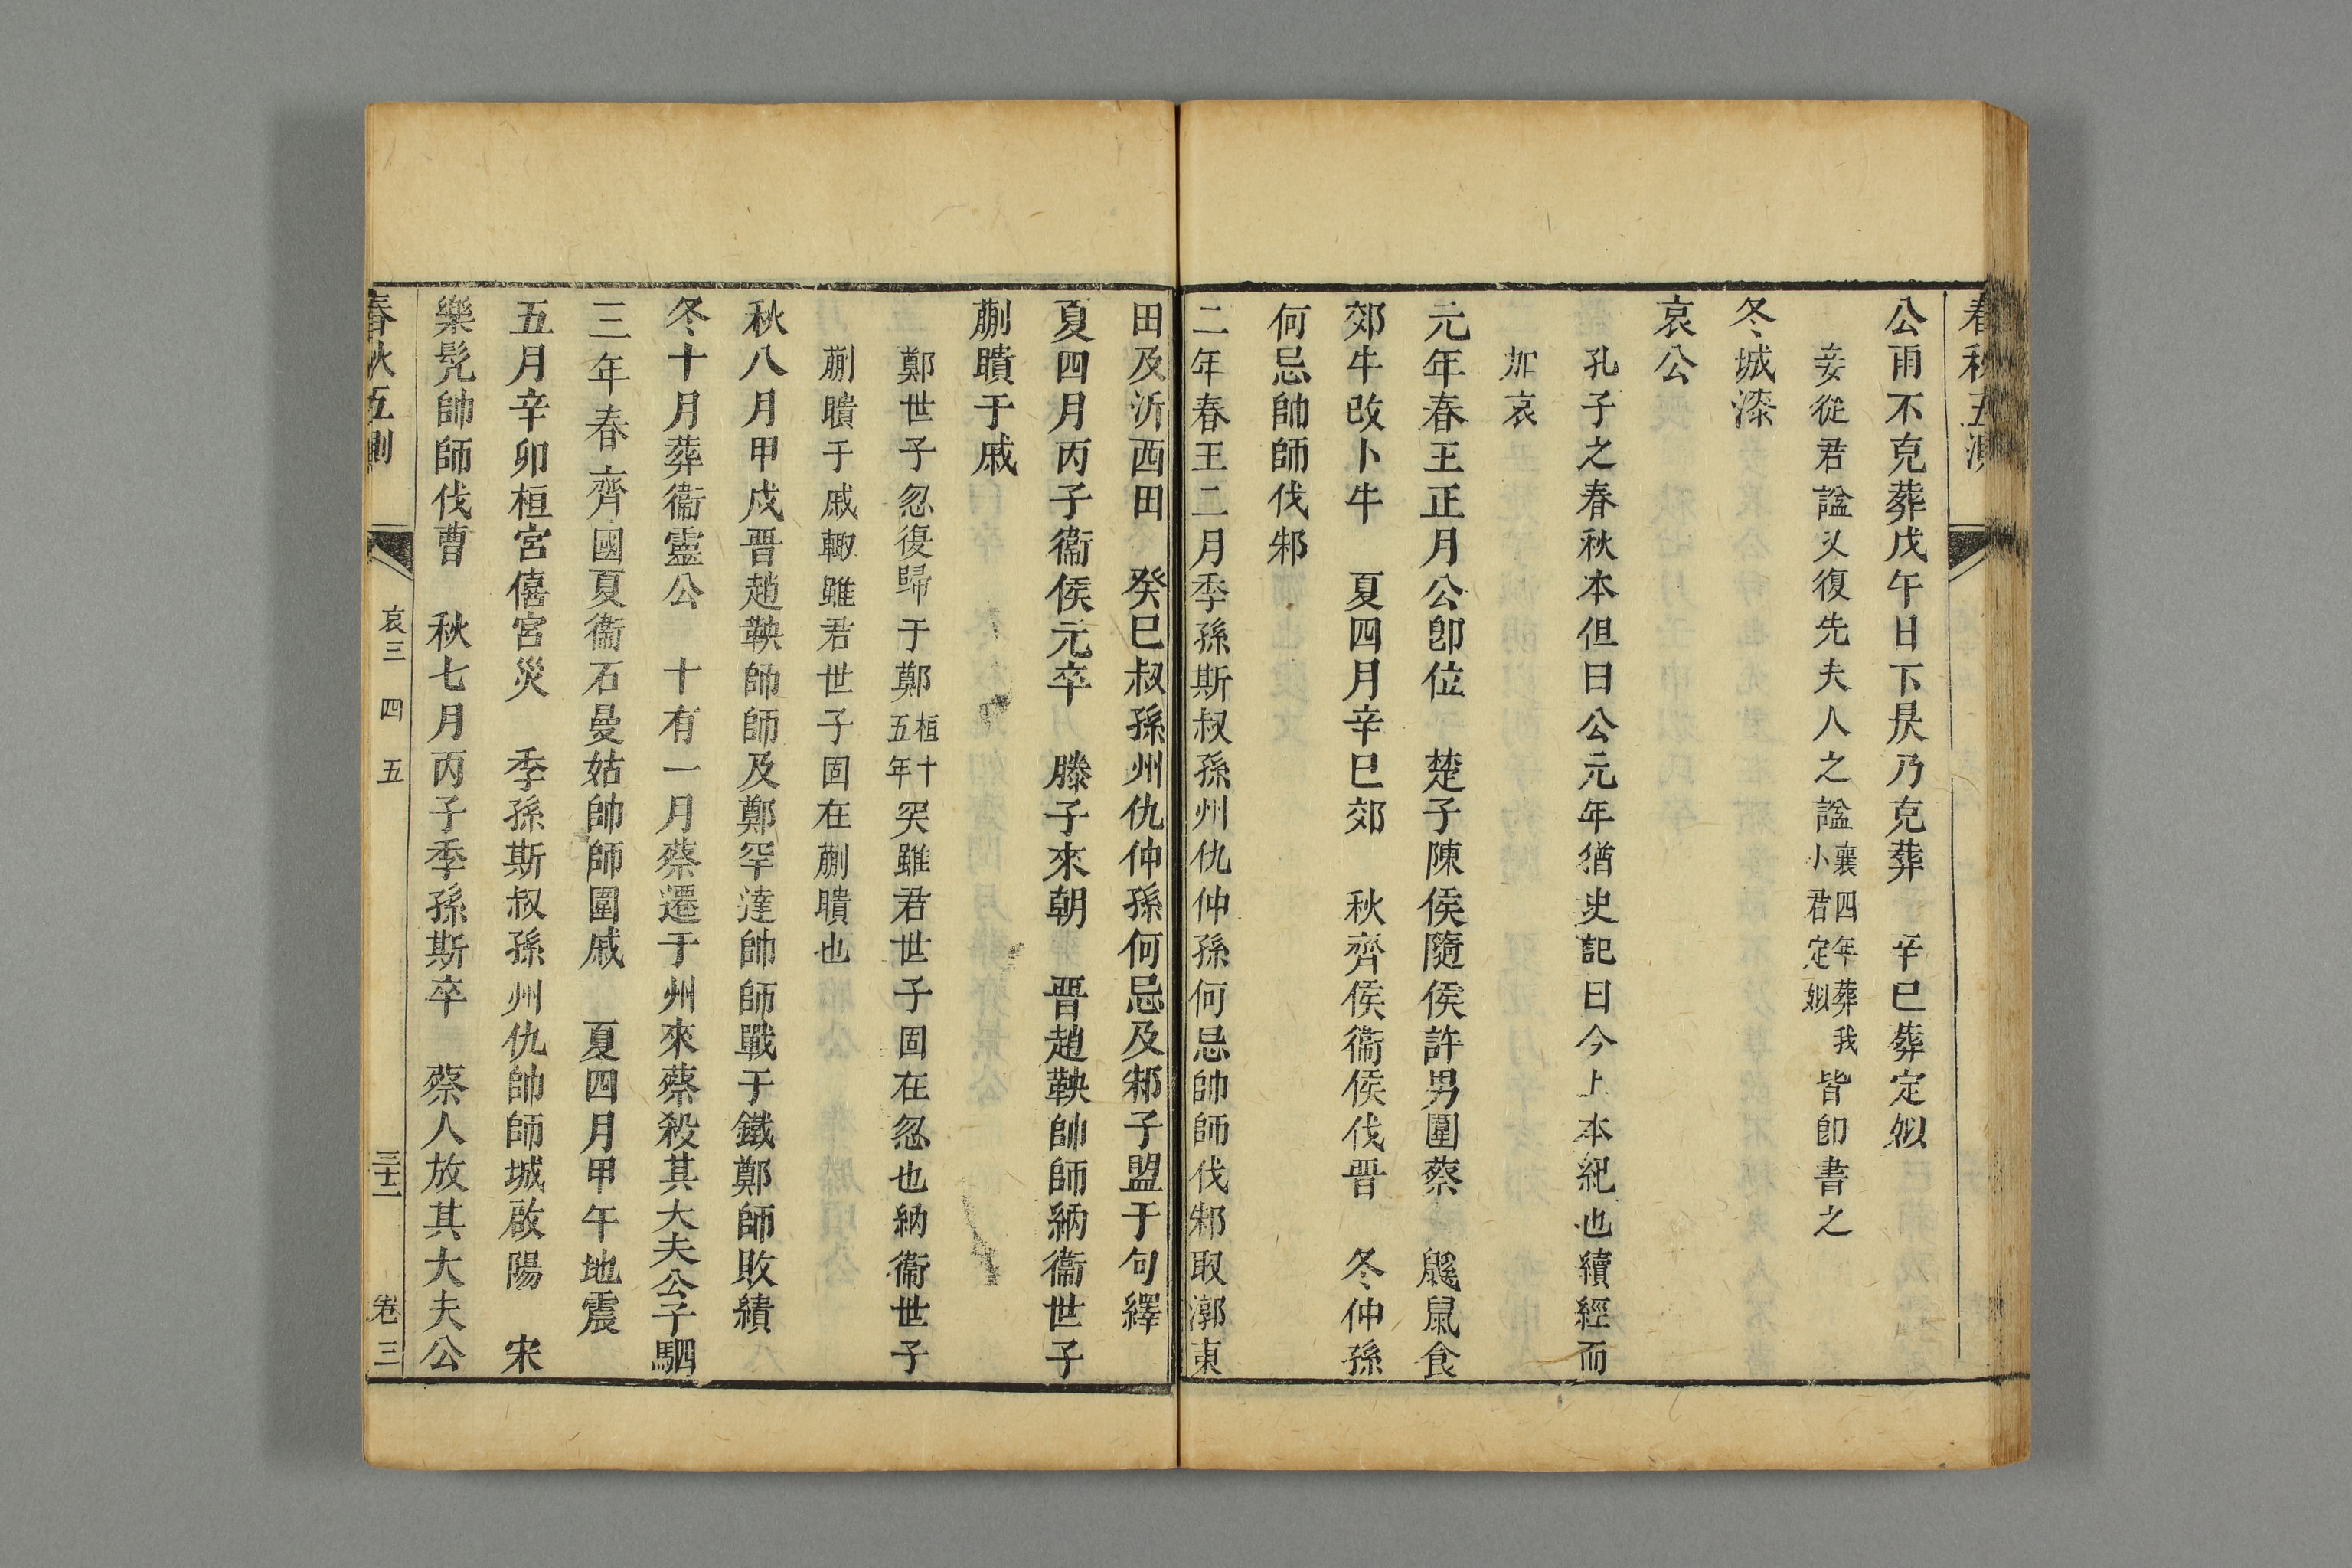 春秋五測
公雨不克葬戊午日下昃乃克葬　辛巳葬定姒
妾從君諡又復先夫人之諡襄四年葬我小君定姒皆卽書之
冬城漆
哀公
孔子之春秋本但曰公元年猶史記曰今上本紀也續經而
加哀
元年春王正月公卽位　楚子陳侯隨侯許男圍蔡　鼷鼠食
郊牛改卜牛　夏四月辛巳郊　秋齊侯衞侯伐晉　冬仲孫
何忌帥師伐邾
二年春王二月季孫斯叔孫州仇仲孫何忌帥師伐邾取漷東
田及沂西田　癸巳叔孫州仇仲孫何忌及邾子盟于句繹
夏四月丙子衞侯元卒　滕子來朝　晉趙鞅帥師納衞世子
蒯聵于戚
鄭世子忽復歸于鄭桓十五年突雖君世子固在忽也納衞世子
蒯聵于戚輒雖君世子固在蒯聵也
秋八月甲戌晉趙鞅帥師及鄭罕達帥師戰于鐵鄭師敗績
冬十月葬衞靈公　十有一月蔡遷于州來蔡殺其大夫公子駟
三年春齊國夏衞石曼姑帥師圍戚　夏四月甲午地震
五月辛卯桓宮僖宮災　季孫斯叔孫州仇帥師城啟陽　宋
樂髡帥師伐曹　秋七月丙子季孫斯卒　蔡人放其大夫公
春秋五測　哀三　四　五　三十二　卷三